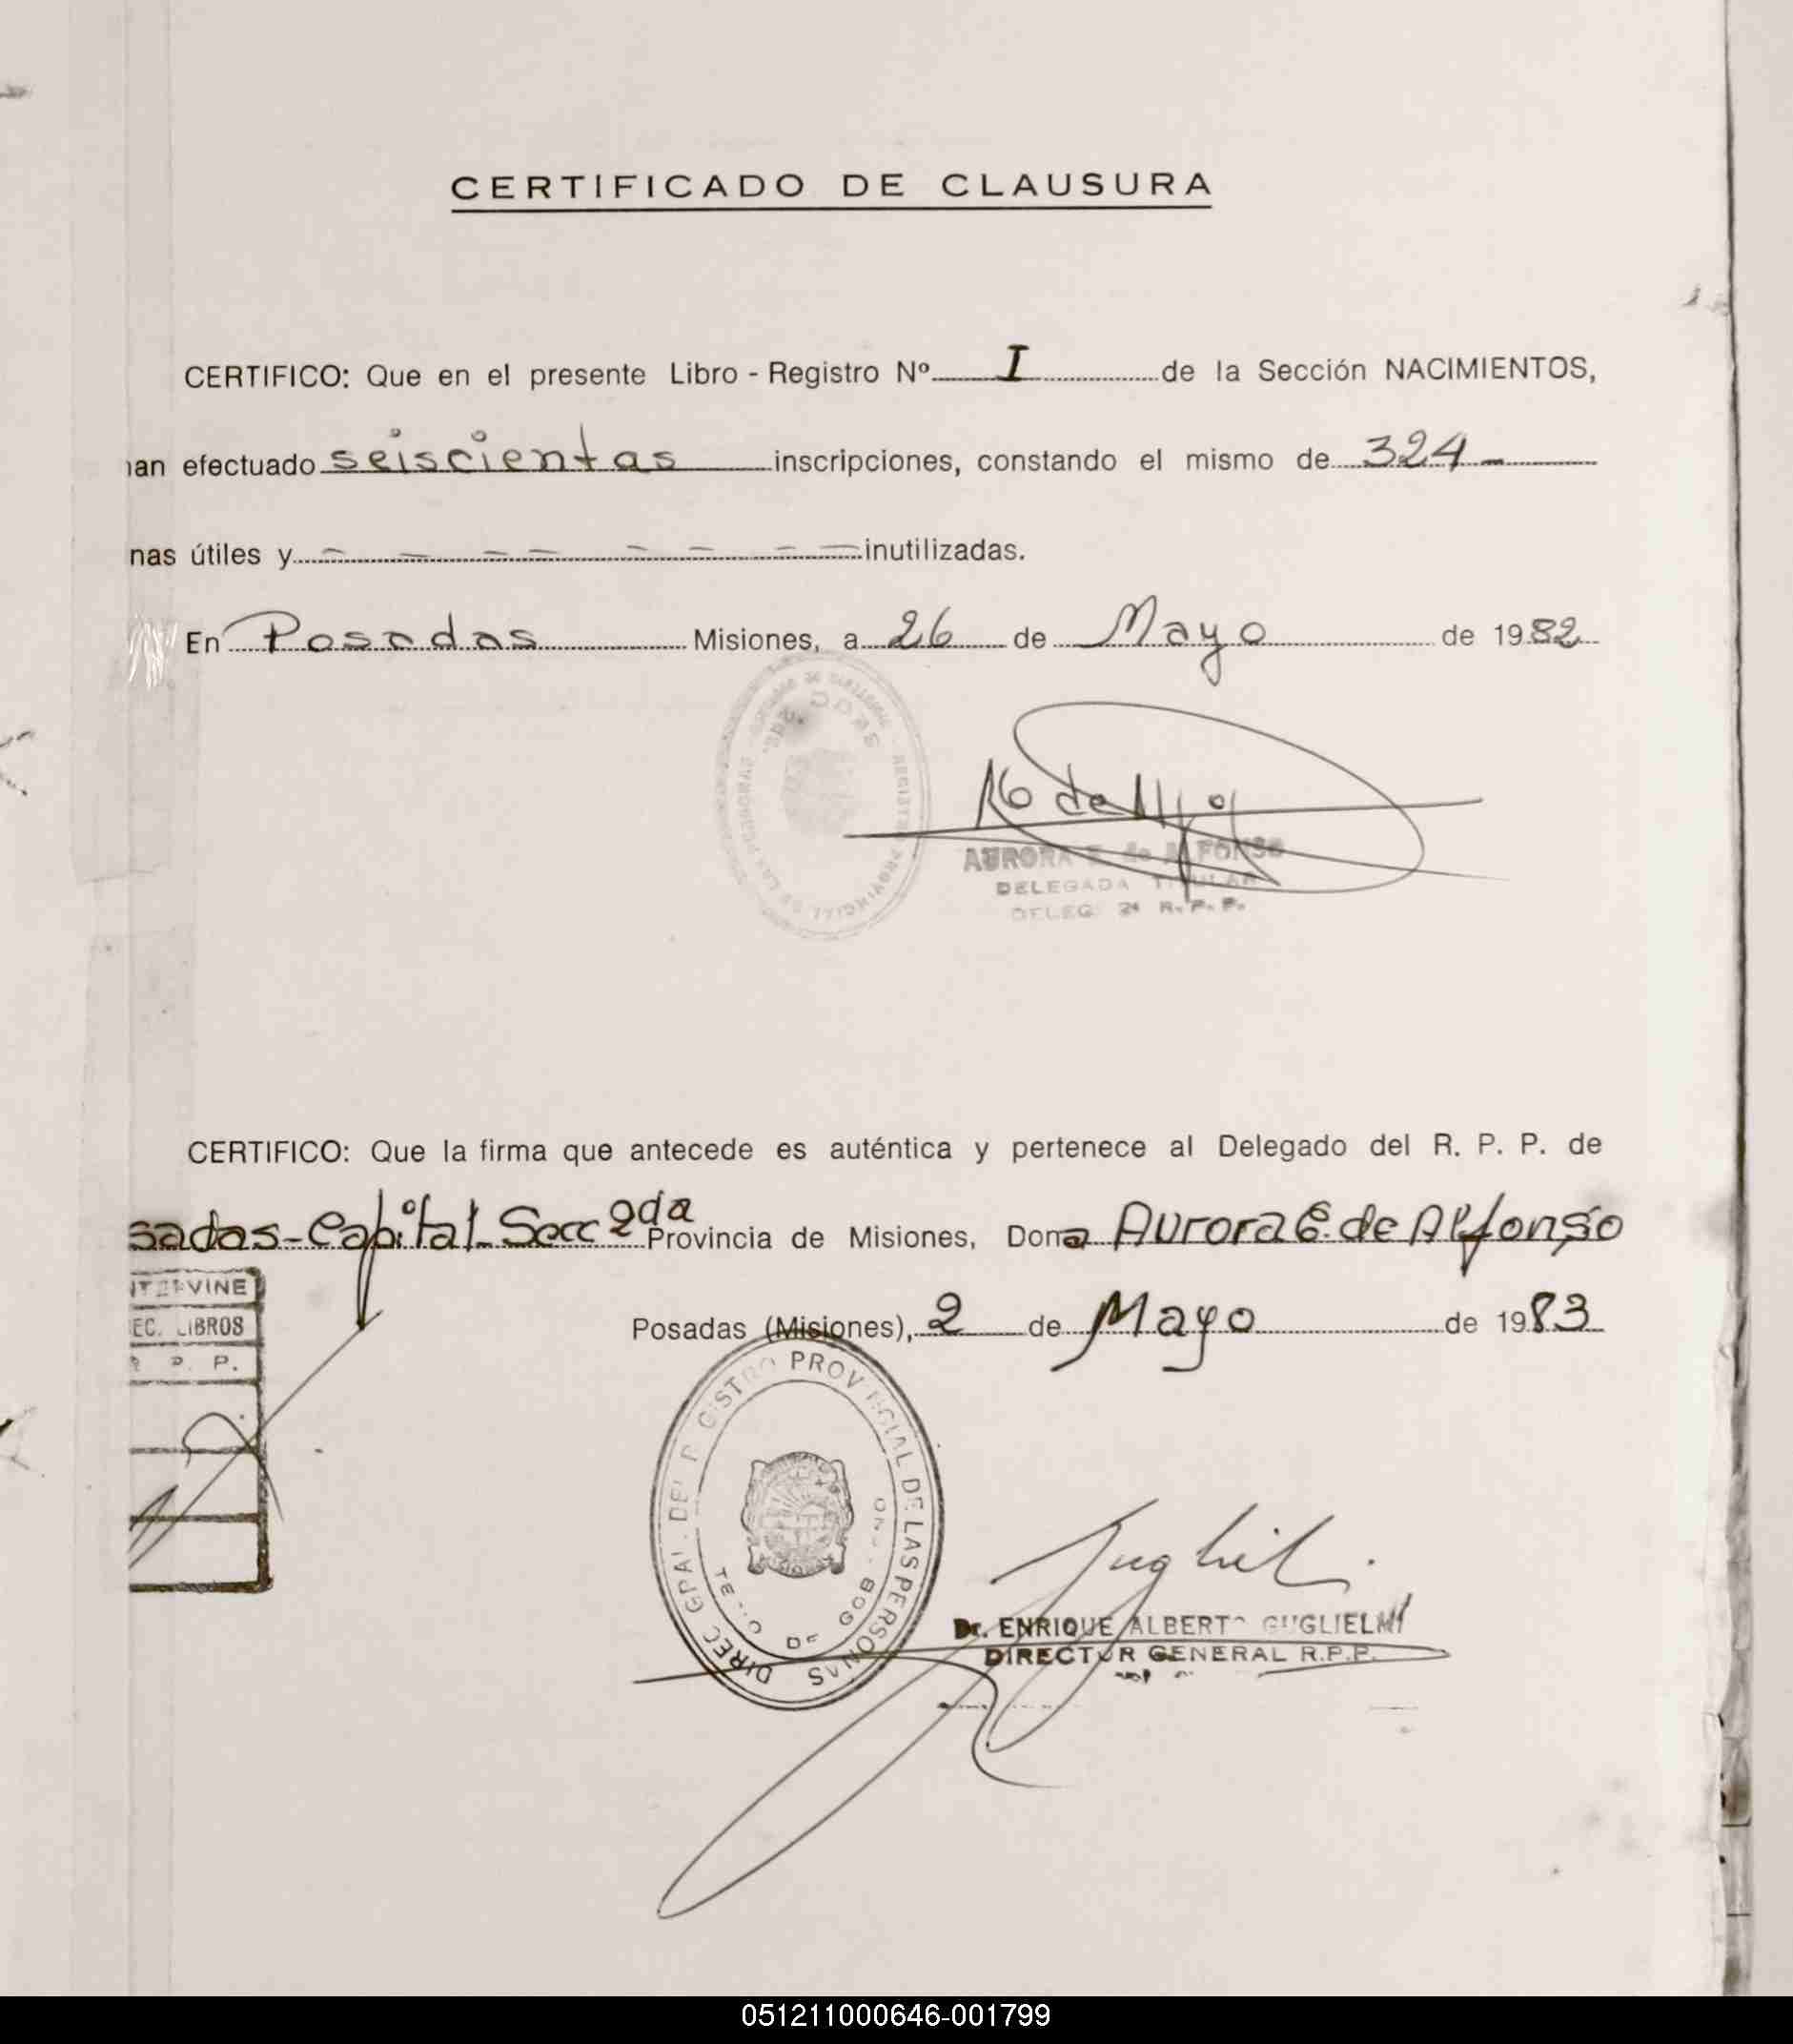 CERTIFICADO DE CLAUSURA
CERTIFICO: Que en el presente Libro - Registro Nº I de la Sección NACIMIENTOS,
an efectuado seiscientas inscripciones, constando el mismo de 324-
nas útiles y - - - - - - - - inutilizadas.
En Posadas Misiones, a 26 de Mayo de 1982
AURORA E de ALFONSO
DELEGADA TITULAR
DELEG. 2ª R. P. P.
CERTIFICO: Que la firma que antecede es auténtica y pertenece al Delegado del R. P. P. de
sadas-Capital-Secc 2da Provincia de Misiones, Dona Aurora E. de Alfonso
Posadas (Misiones), 2 de Mayo de 1983
NTERVINE
EC. LIBROS
R. P. P.
DIREC GRAL. DEL REGISTRO PROVINCIAL DE LAS PERSONAS
DE GOB
Dr. ENRIQUE ALBERTO GUGLIELMI
DIRECTOR GENERAL R.P.P.
051211000646-001799